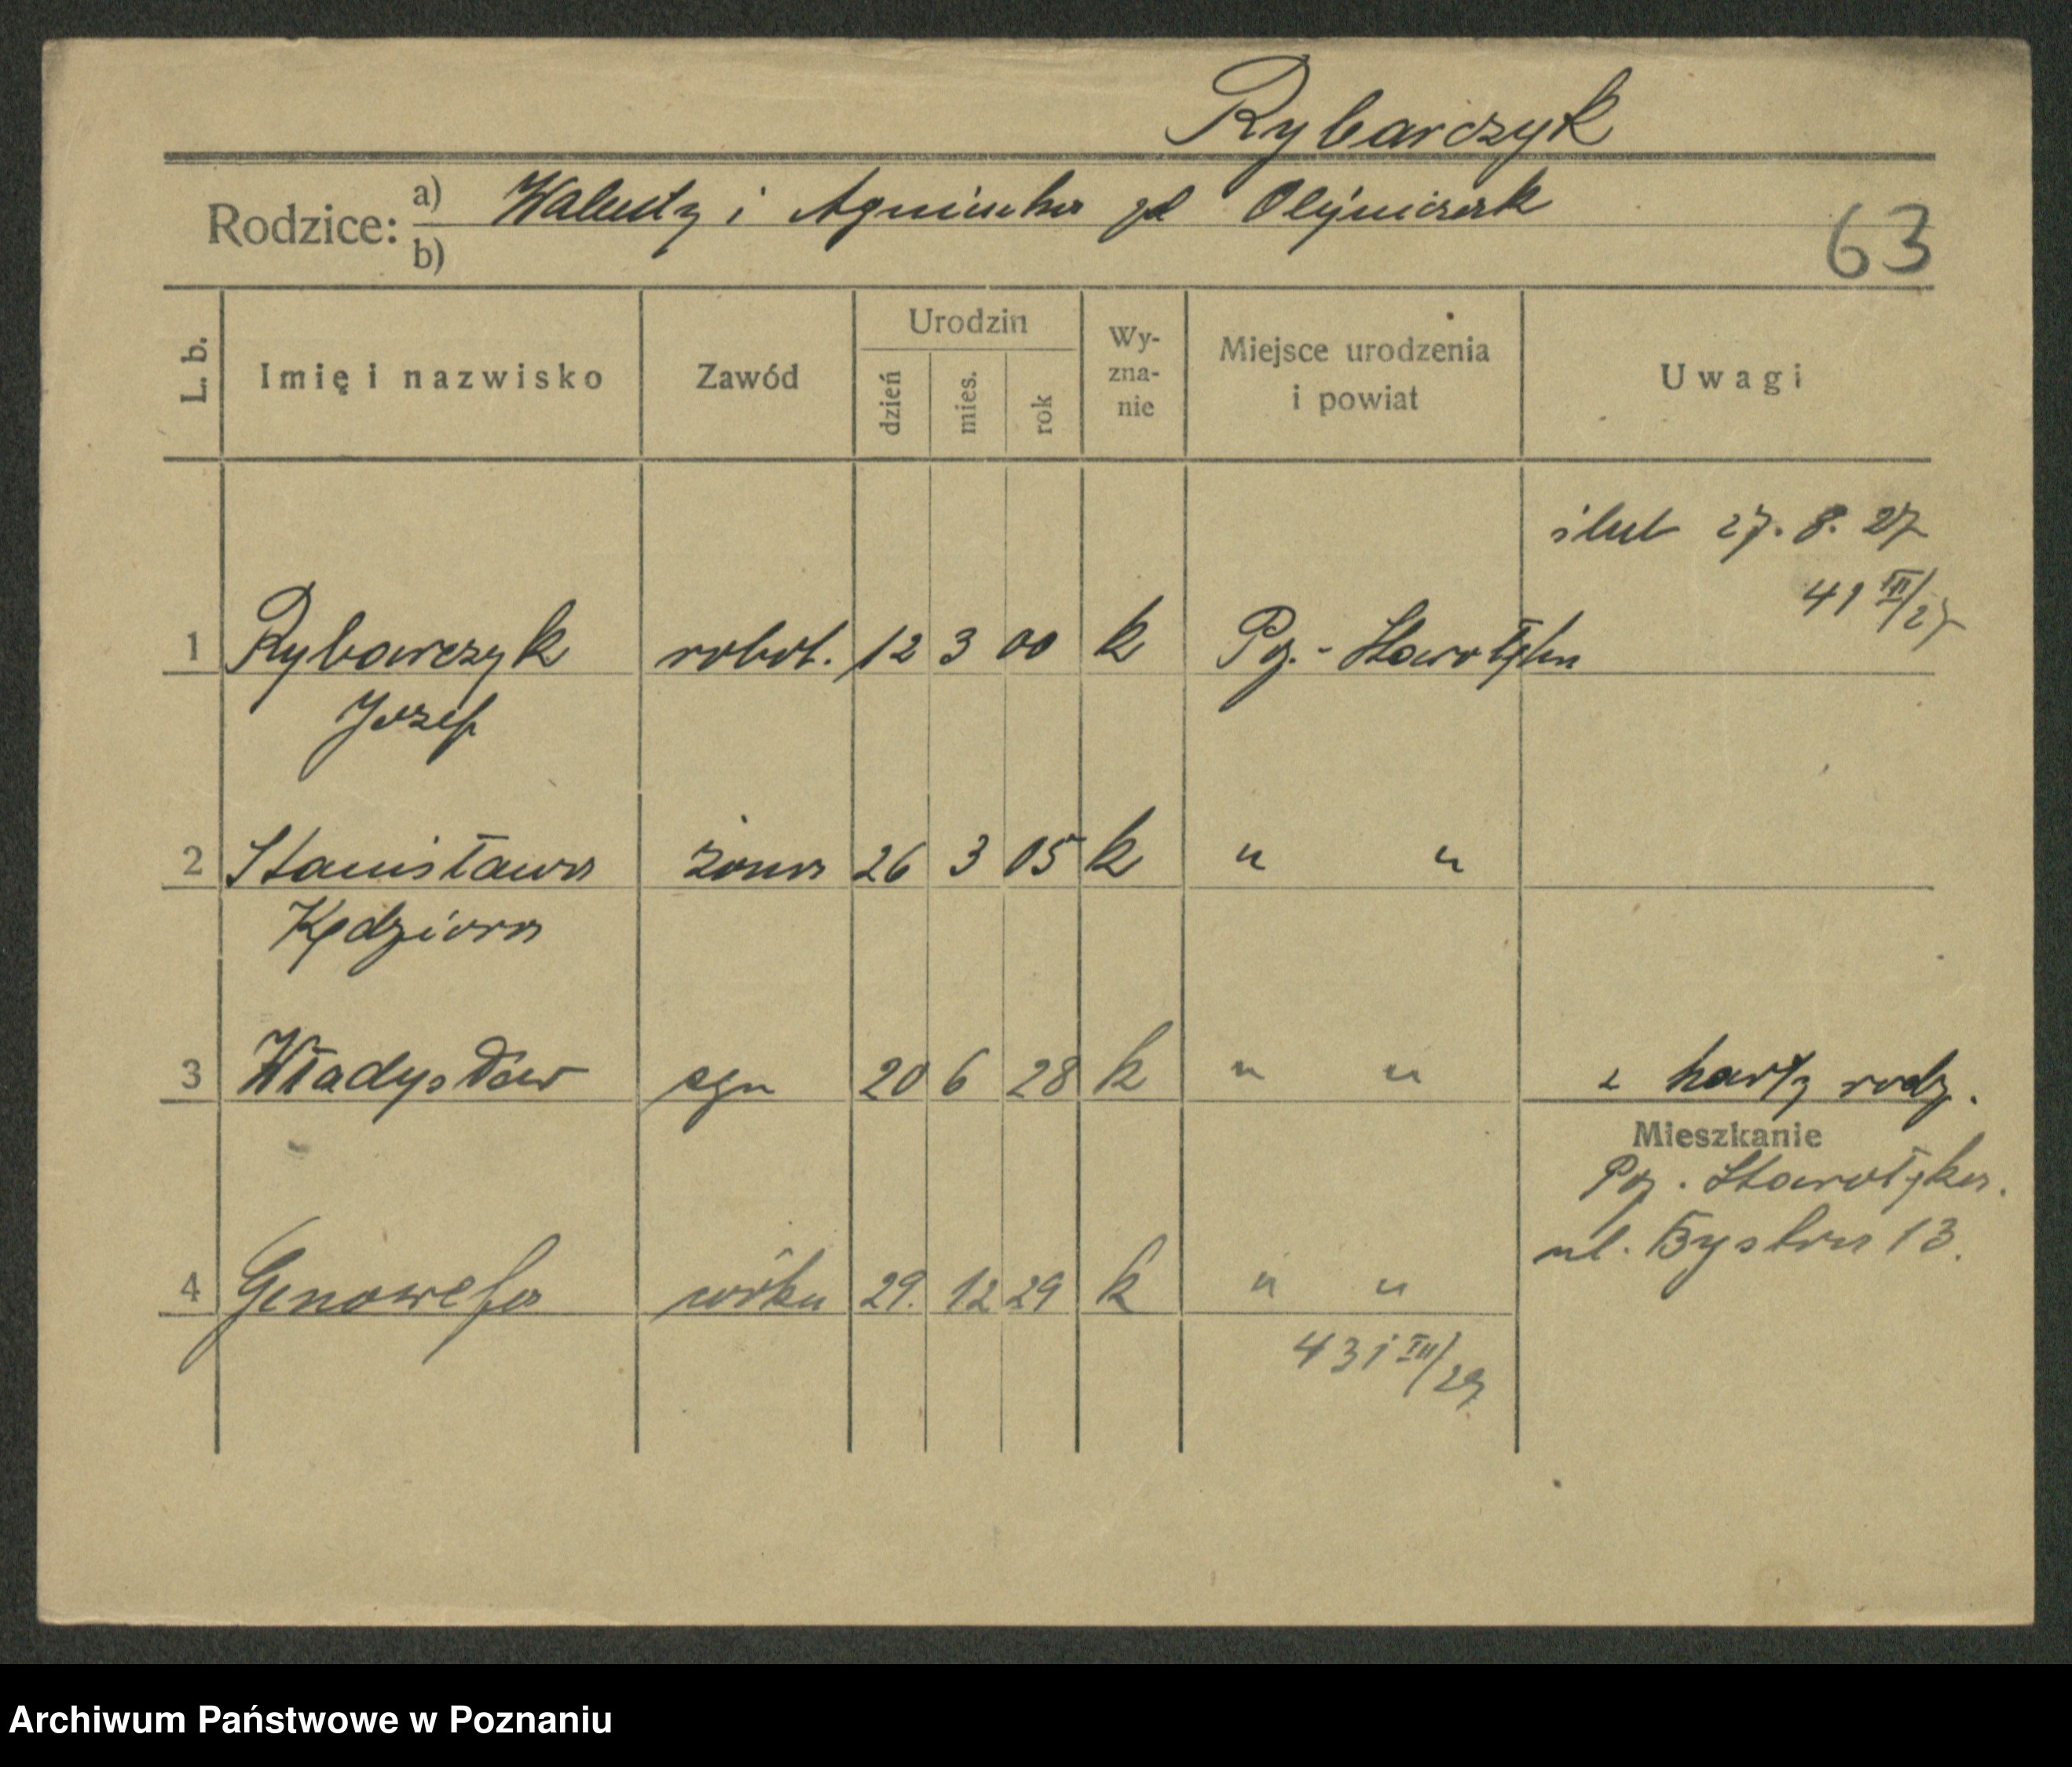 Rybarczyk
Rodzice: a) Walenty i Agnieszka zd Olejniczak
b)
63
L. b. Imię i nazwisko Zawód Urodzin dzień mies. rok Wy-zna-nie Miejsce urodzenia i powiat Uwagi
ślub 27. 8. 27
41 III/27
1 Rybarczyk robot. 12 3 00 k Poz.-Starołęka
Józef
2 Stanisława żona 26 3 05 k " "
Kędziora
3 Władysław syn 20 6 28 k " " z karty rodz.
Mieszkanie
Poz. Starołęka.
ul. Bystra 13.
4 Genowefa córka 29. 12 29 k " "
431 III/29
Archiwum Państwowe w Poznaniu